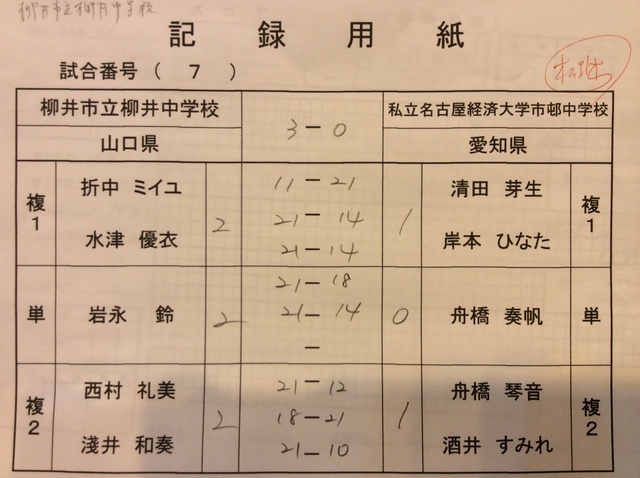 柳井市立柳井中学校
記録用紙
試合番号（ 7 ）
柳井市立柳井中学校 3－0 私立名古屋経済大学市邨中学校
山口県 愛知県
複1 折中 ミイユ 水津 優衣 2
11－21
21－14
21－14
1 清田 芽生 岸本 ひなた 複1
単 岩永 鈴 2
21－18
21－14
－
0 舟橋 奏帆 単
複2 西村 礼美 淺井 和奏 2
21－12
18－21
21－10
1 舟橋 琴音 酒井 すみれ 複2